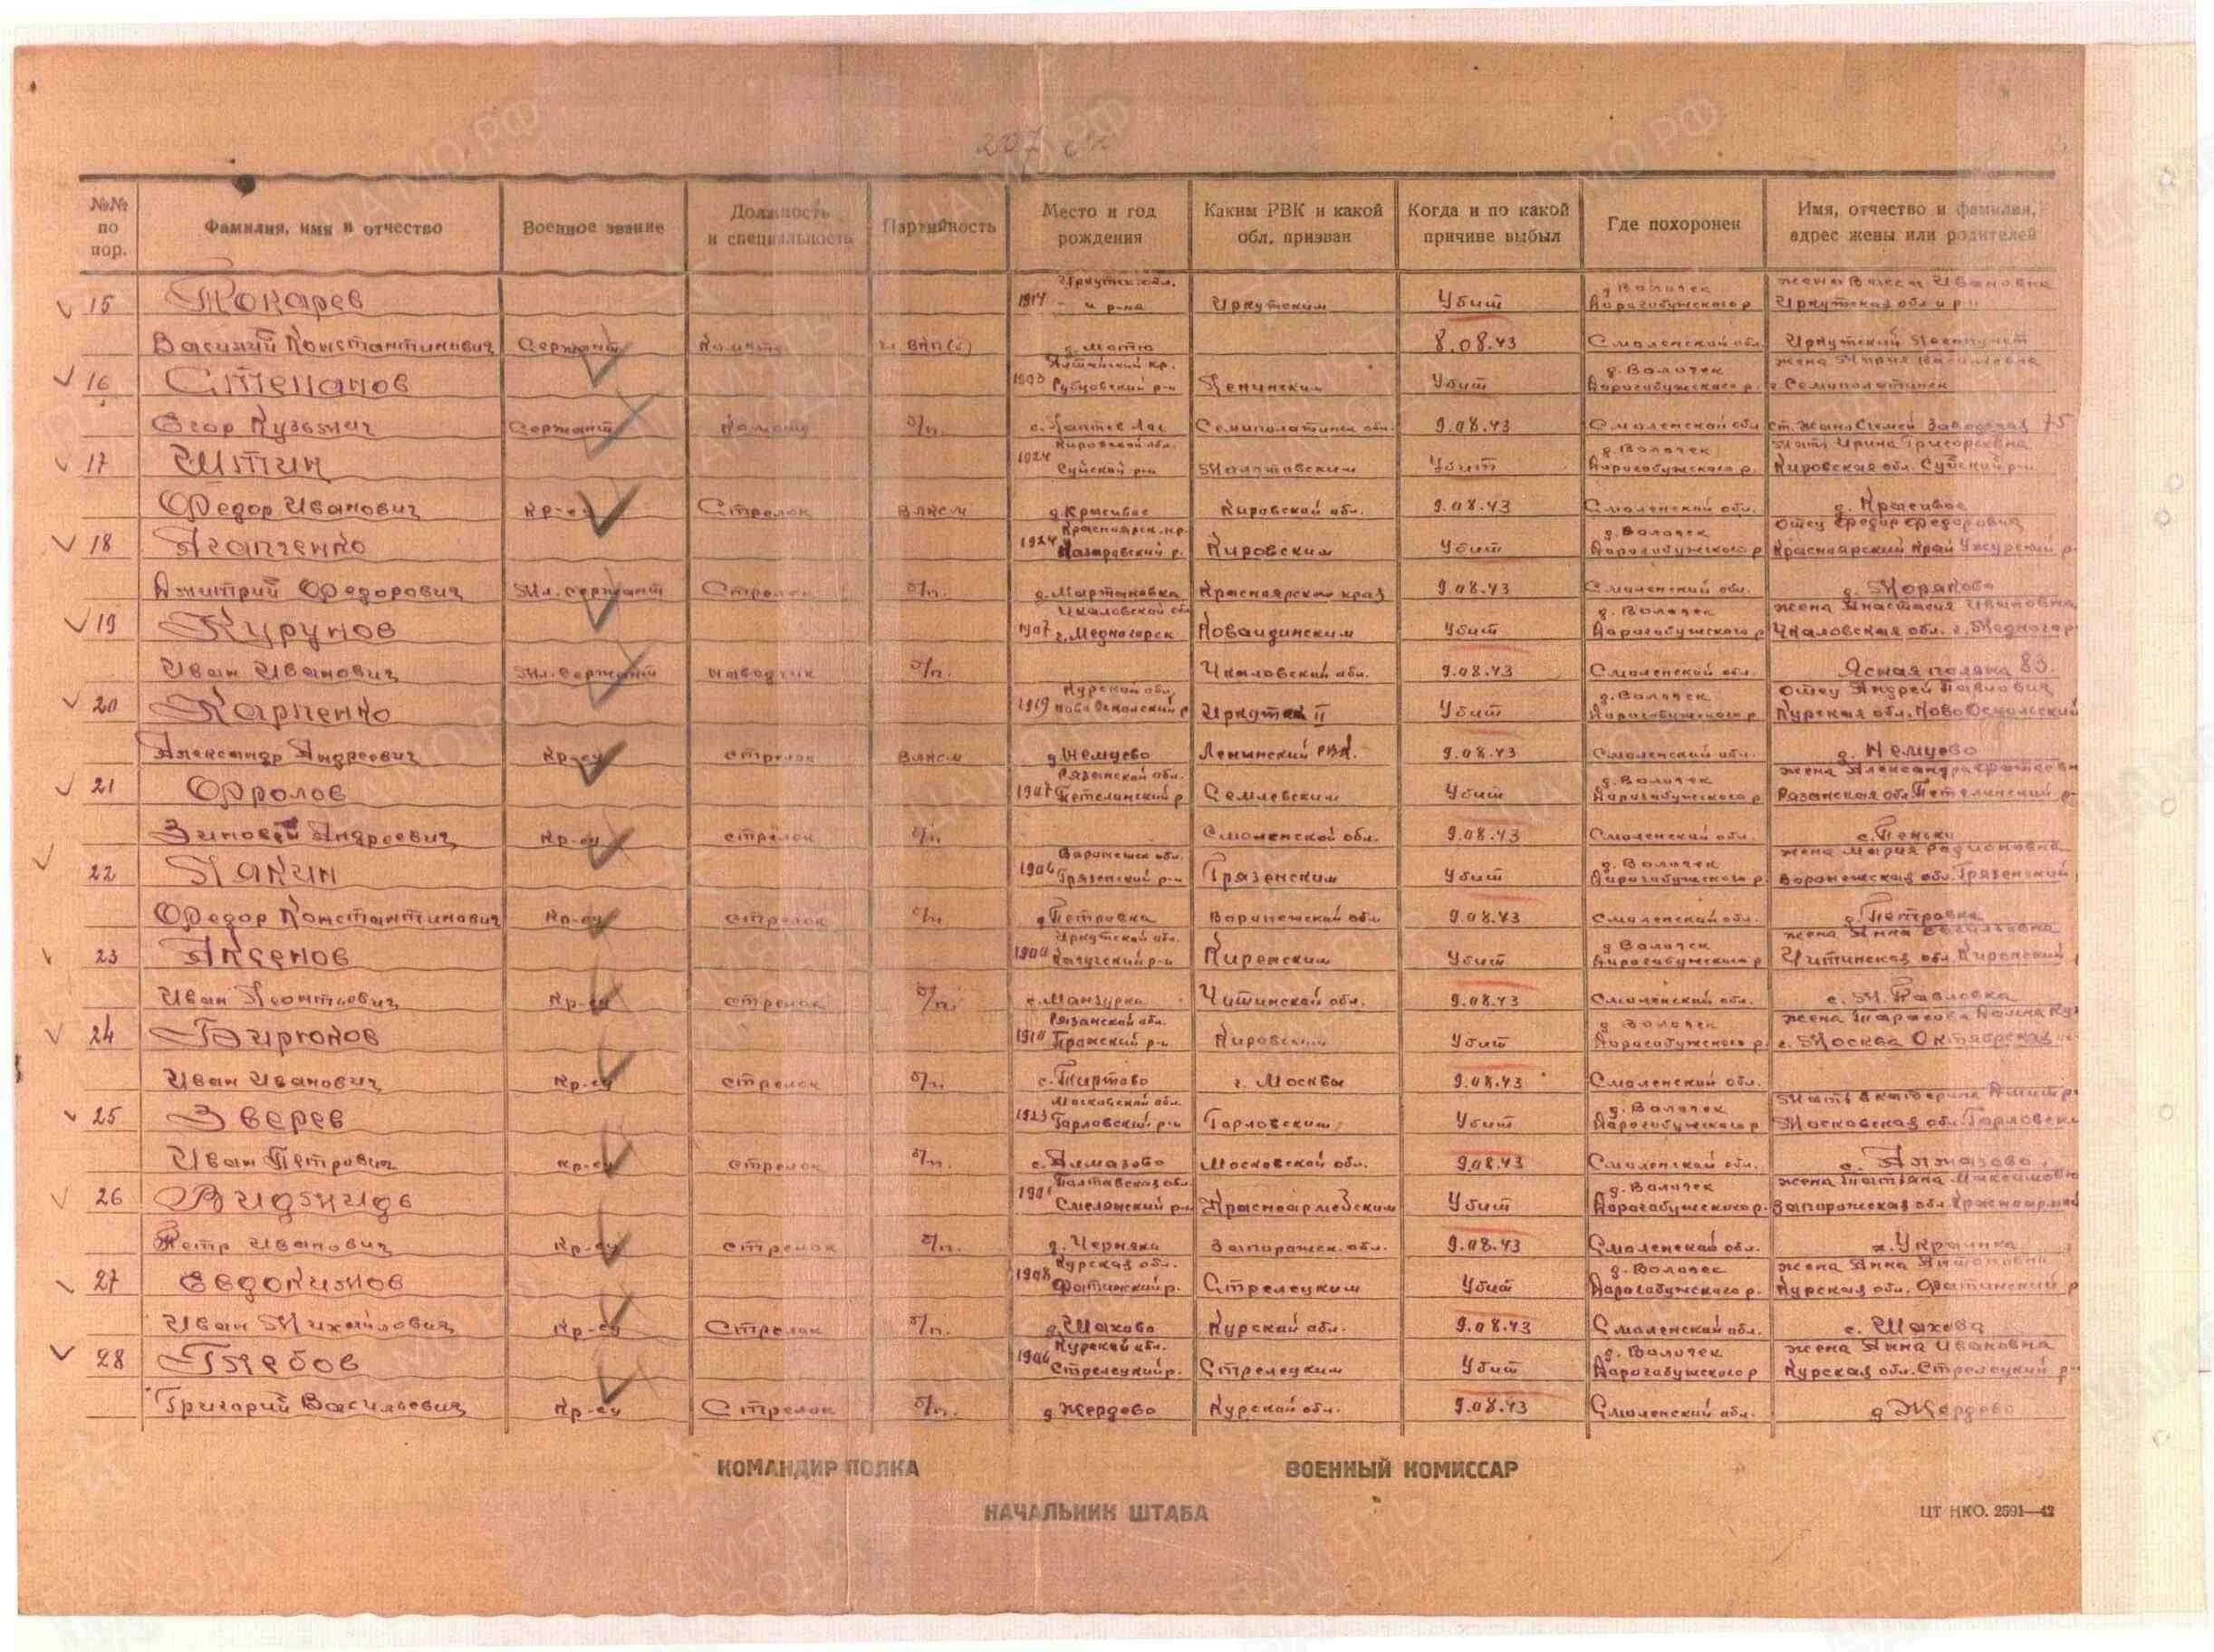 №№ по пор. Фамилия, имя и отчество Военное звание Должность и специальность Партийность Место и год рождения Каким РВК и какой обл. призван Когда и по какой причине выбыл Где похоронен Имя, отчество и фамилия, адрес жены или родителей
Иркутск. обл. д. Волочек жена Ивановна
15 Токарев 1914 р-на Иркутским Убит Дорогобужского р Иркутская обл
Василий Константинович Сержант 8.08.43 Смоленской обл. Иркутский
Алтайский кр. д. Волочек жена Мария Васильевна
16 Степанов Рубцовский р-н Ленинским Убит Дорогобужского р. г. Семипалатинск
Егор Кузьмич Сержант б/п. Семипалатинск обл. 9.08.43 Смоленской обл 75
Кировской обл. д. Волочек мать Ирина Григорьевна
17 Шитин 1924 Сунской р-н Убит Дорогобужского р. Кировская обл. Сунский р-н
Федор Иванович Кр-ец Стрелок ВЛКСМ д. Красивое Кировской обл. 9.08.43 Смоленской обл. д. Красивое
Красноярск. кр. д. Волочек Отец Федор Федорович
18 Агапченко 1924 Назаровский р. Кировским Убит Дорогобужского р Красноярский край Ужурский р
Дмитрий Федорович Мл. сержант Стрелок б/п. Красноярского края 9.08.43 Смоленской обл.
Чкаловской обл д. Волочек жена Анастасия Ивановна
19 Курунов 1907 г. Медногорск Убит Дорогобужского р Чкаловская обл. г. Медногор
Иван Иванович Мл. сержант наводчик б/п. Чкаловской обл. 9.08.43 Смоленской обл. Ясная поляна 83.
Курской обл. д. Волочек Отец Андрей Павлович
20 Карпенко 1919 Ново Оскольский р Убит Дорогобужского р Курская обл. Ново Оскольский
Александр Андреевич Кр-ец стрелок ВЛКСМ д. Немцево Ленинский РВК. 9.08.43 Смоленской обл. д. Немцево
Рязанской обл. д. Волочек жена Александра
21 Фролов 1907 Петелинский р Семлевским Убит Дорогобужского р. Рязанская обл. Петелинский р-
Зиновей Андреевич Кр-ец стрелок б/п. Смоленской обл. 9.08.43 Смоленской обл. с. Пеньки
Воронежск обл. д. Волочек жена Мария Родионовна
22 Лакин 1906 Грязенский р-н Грязенским Убит Дорогобужского р. Воронежская обл. Грязенский
Федор Константинович Кр-ец стрелок б/п. д. Петровка Воронежской обл 9.08.43 Смоленской обл. д. Петровка
Иркутской обл. д. Волочек жена Анна Васильевна
23 Аксенов Качугский р-н Киренским Убит Дорогобужского р Читинская обл. Киренский
Иван Леонтьевич Кр-ец стрелок б/п. с. Манзурка Читинской обл. 9.08.43 Смоленской обл.
Рязанской обл. д. Волочек жена Тарасова
24 Бирюков 1910 Кировским Убит Дорогобужского р. г. Москва Октябрьская
Иван Иванович Кр-ец стрелок б/п. г. Москвы 9.08.43 Смоленской обл.
Московской обл. д. Волочек Мать Екатерина Дмитр
25 Зверев 1923 Горловский р-н Горловским Убит Дорогобужского р Московская обл. Горловски
Иван Петрович Кр-ец стрелок б/п. с. Алмазово Московской обл. 9.08.43 Смоленской обл. с. Алмазово
Полтавская обл. д. Волочек жена Татьяна Максимовна
26 Видмидь 1901 Смелянский р-н Красноармейским Убит Дорогобужского р. Запорожская обл. Красноармей
Петр Иванович Кр-ец стрелок б/п. д. Черняки Запорожск. обл. 9.08.43 Смоленской обл. х. Украинка
Курская обл. д. Волочек жена Анна Антоновна
27 Евдокимов 1908 Фатижский р. Стрелецким Убит Дорогобужского р. Курская обл. Фатинский р
Иван Михайлович Кр-ец Стрелок б/п. д. Шахово Курской обл. 9.08.43 Смоленской обл. с. Шахово
Курской обл. д. Волочек жена Анна Ивановна
28 Глебов 1906 Стрелецкий р. Стрелецким Убит Дорогобужского р Курская обл. Стрелецкий р-
Григорий Васильевич Кр-ец Стрелок б/п. д. Жердово Курской обл. 9.08.43 Смоленской обл. д. Жердово
КОМАНДИР ПОЛКА ВОЕННЫЙ КОМИССАР
НАЧАЛЬНИК ШТАБА
ЦТ НКО. 2591—42